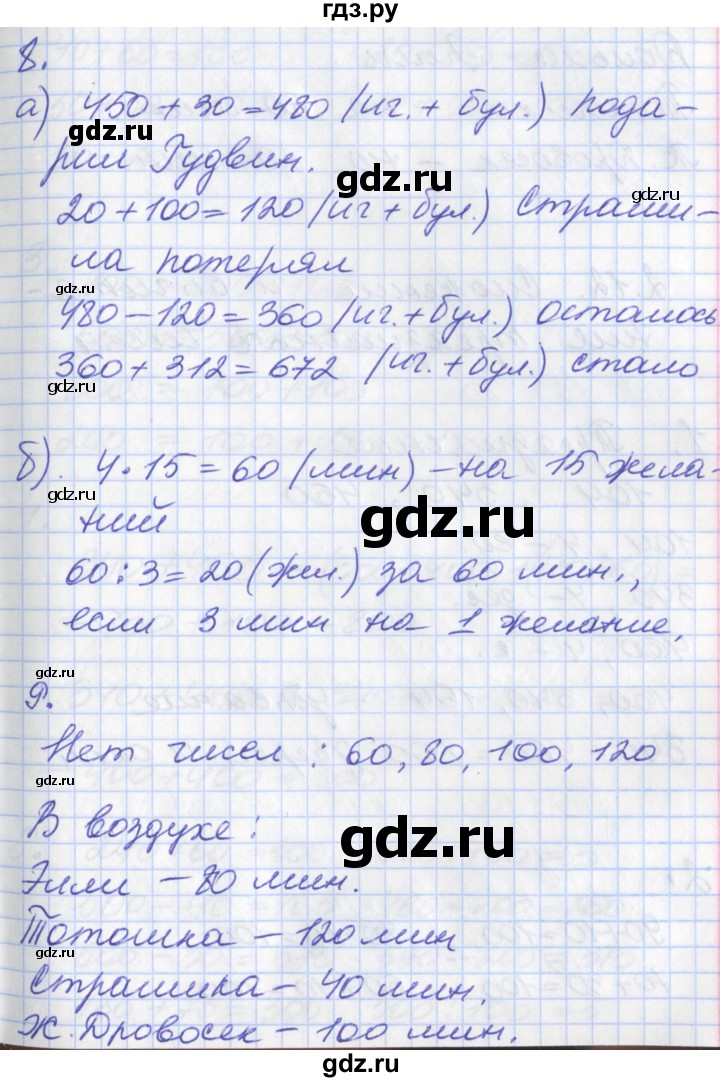 гдз.ру
8.
а) 450 + 30 = 480 (иг. + бул.) пода-
gdz.ru
рил Гудвин.
gdz.ru
20 + 100 = 120 (иг + бул.) Страши-
ла потерял
gdz.ru
480 - 120 = 360 (иг. + бул.) осталось
360 + 312 = 672 (иг. + бул.) стало
gdz.ru
б). 4 · 15 = 60 (мин) - на 15 жела-
gdz.ru
ний
gdz.ru
60 : 3 = 20 (жел.) за 60 мин.,
если 3 мин на 1 желание,
gdz.ru
9.
Нет чисел : 60, 80, 100, 120
gdz.ru
В воздухе :
gdz.ru
Элли - 80 мин.
Тотошка - 120 мин
gdz.ru
Страшика - 40 мин.
Ж. Дровосек - 100 мин.
gdz.ru
gdz.ru